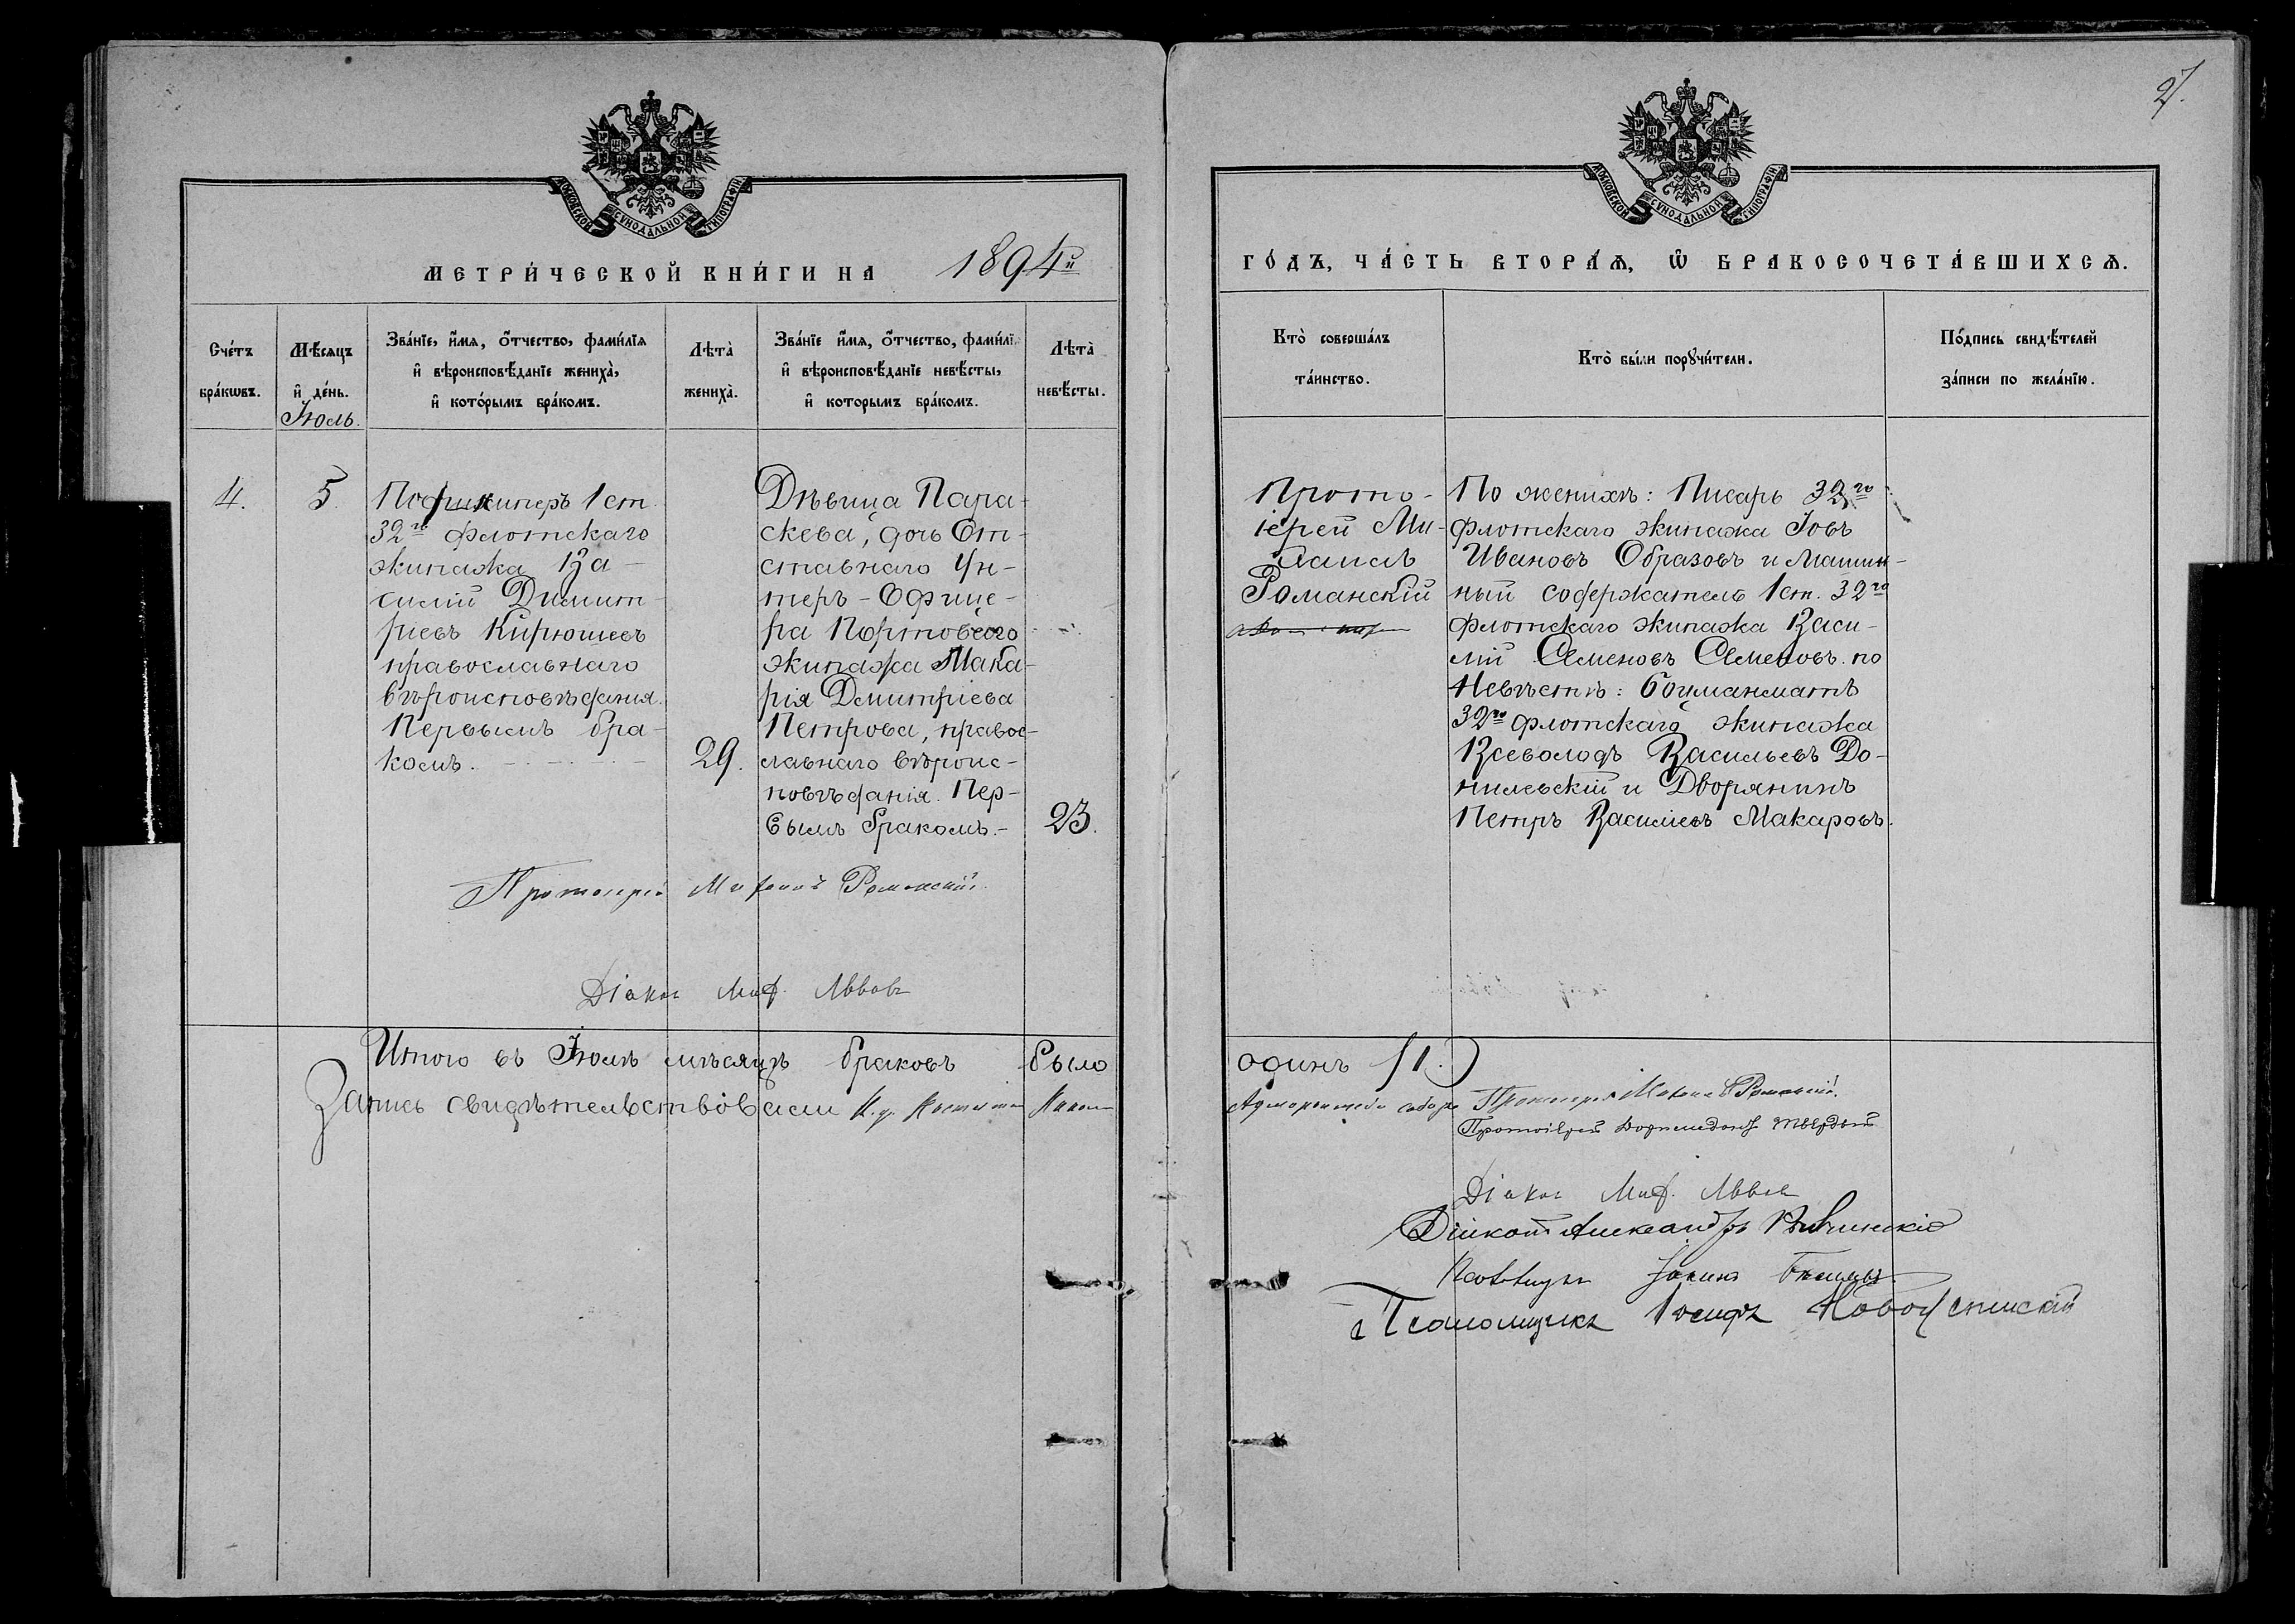 2/.
МОСКОВСКОЙ СѴНОДАЛЬНОЙ ТИПОГРАФІИ
МЕТРИ́ЧЕСКОЙ КНИ́ГИ НА 1894й
Сче́тъ бра́кѡвъ.
Мѣ́сяцъ и҆ де́нь.
Іюль.
Зва́нїе, и҆́мѧ, ѻ҆́тчество, фами́лїѧ
и҆ вѣроисповѣ́данїе жениха̀,
и҆ кото́рымъ бра́комъ.
Лѣта̀ жениха̀.
Зва́нїе и҆́мѧ, ѻ҆́тчество, фами́лї
и҆ вѣроисповѣ́данїе невѣ́сты,
и҆ которымъ бра́комъ.
Лѣта̀ невѣ́сты.
4.
5.
Подшкиперъ 1 ст.
32го флотскаго
экипажа Ва-
силій Димит-
ріевъ Кирюшев
православнаго
вѣроисповѣданія.
Первымъ бра-
комъ.
29.
Дѣвица Пара-
скева, дочь От-
ставнаго Ун-
теръ-Офице-
ра Портоваго
экипажа Мака-
рія Дмитріева
Петрова, правос-
лавнаго вѣроис-
повѣданія. Пер-
вымъ бракомъ.-
23.
Протоіерей Михаилъ Романскій
Діакон Миф. Львовъ
Итого въ Іюлѣ мѣсяцѣ браковъ было
Запись свидѣтельствовали
МОСКОВСКОЙ СѴНОДАЛЬНОЙ ТИПОГРАФІИ
ГО́ДЪ, ЧА́СТЬ ВТОРА́Ѧ, Ѡ҆ БРАКОСОЧЕТА́ВШИХСѦ.
Кто̀ соверша́лъ
та́инство.
Кто̀ бы́ли порꙋчи́тели.
По́дпись свидѣ́телей
за́писи по жела́нїю.
Прото-
іерей Ми-
хаилъ
Романскій
По женихѣ: Писарь 32го
флотскаго экипажа Іовъ
Ивановъ Образовъ и Машин-
ный содержатель 1 ст. 32го
флотскаго экипажа Васи-
лій Семеновъ Семеновъ. по
Невѣстѣ: боцманматъ
32го флотскаго экипажа
Всеволодъ Васильевъ До-
нилевскій и Дворянинъ
Петръ Василіевъ Макаровъ.
одинъ (1.)
собора Протоіерей Романскій
Протоіерей Доримедонт Твердый
Діакон Миф. Львов
Діаконъ Александръ
Псаломщикъ Іосифъ Новоуспенскій